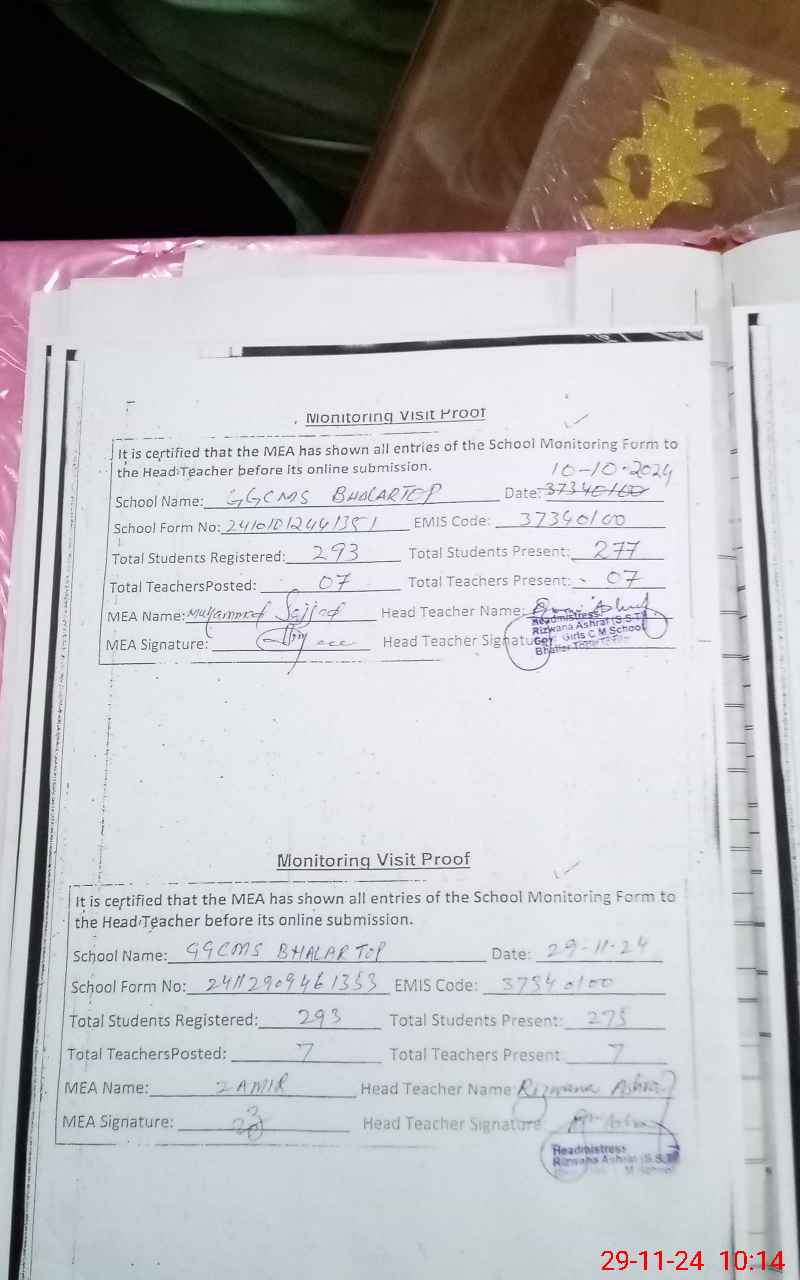 Monitoring Visit Proof
It is certified that the MEA has shown all entries of the School Monitoring Form to
the Head Teacher before its online submission.
10-10-2024
School Name: GGCMS BHALARTOP Date: 37340100
School Form No: EMIS Code: 37340100
Total Students Registered: 293 Total Students Present: 277
Total TeachersPosted: 07 Total Teachers Present: 07
MEA Name: Muhammad Sajjad Head Teacher Name:
MEA Signature: Head Teacher Signature
Headmistress
Rizwana Ashraf (S.S.T)
Gov: Girls C.M School
Monitoring Visit Proof
It is certified that the MEA has shown all entries of the School Monitoring Form to
the Head Teacher before its online submission.
School Name: GGCMS BHALAR TOP Date: 29-11-24
School Form No: EMIS Code: 37340100
Total Students Registered: 293 Total Students Present: 275
Total TeachersPosted: 7 Total Teachers Present 7
MEA Name: ZAMIR Head Teacher Name: Rizwana Ashraf
MEA Signature: Head Teacher Signature
Headmistress
Rizwana Ashraf (S.S.T)
M School
29-11-24 10:14